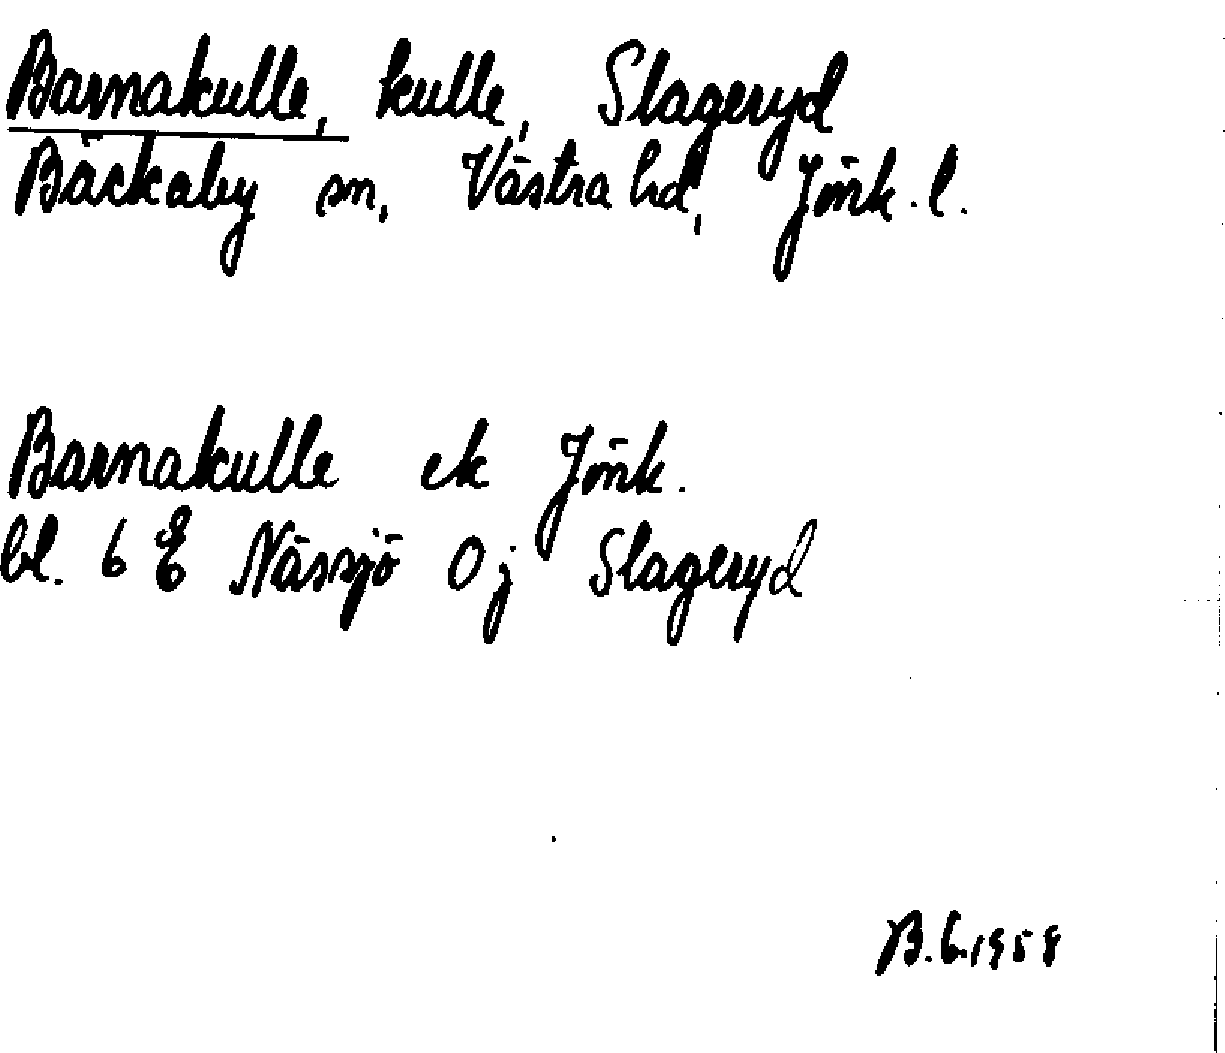 Barnakulle, kulle, Slageryd
Bäckaby sn, Västra hd, Jönk. l.
Barnakulle ek Jönk.
bl. 6 E Nässjö 0 j Slageryd
B.G.1958